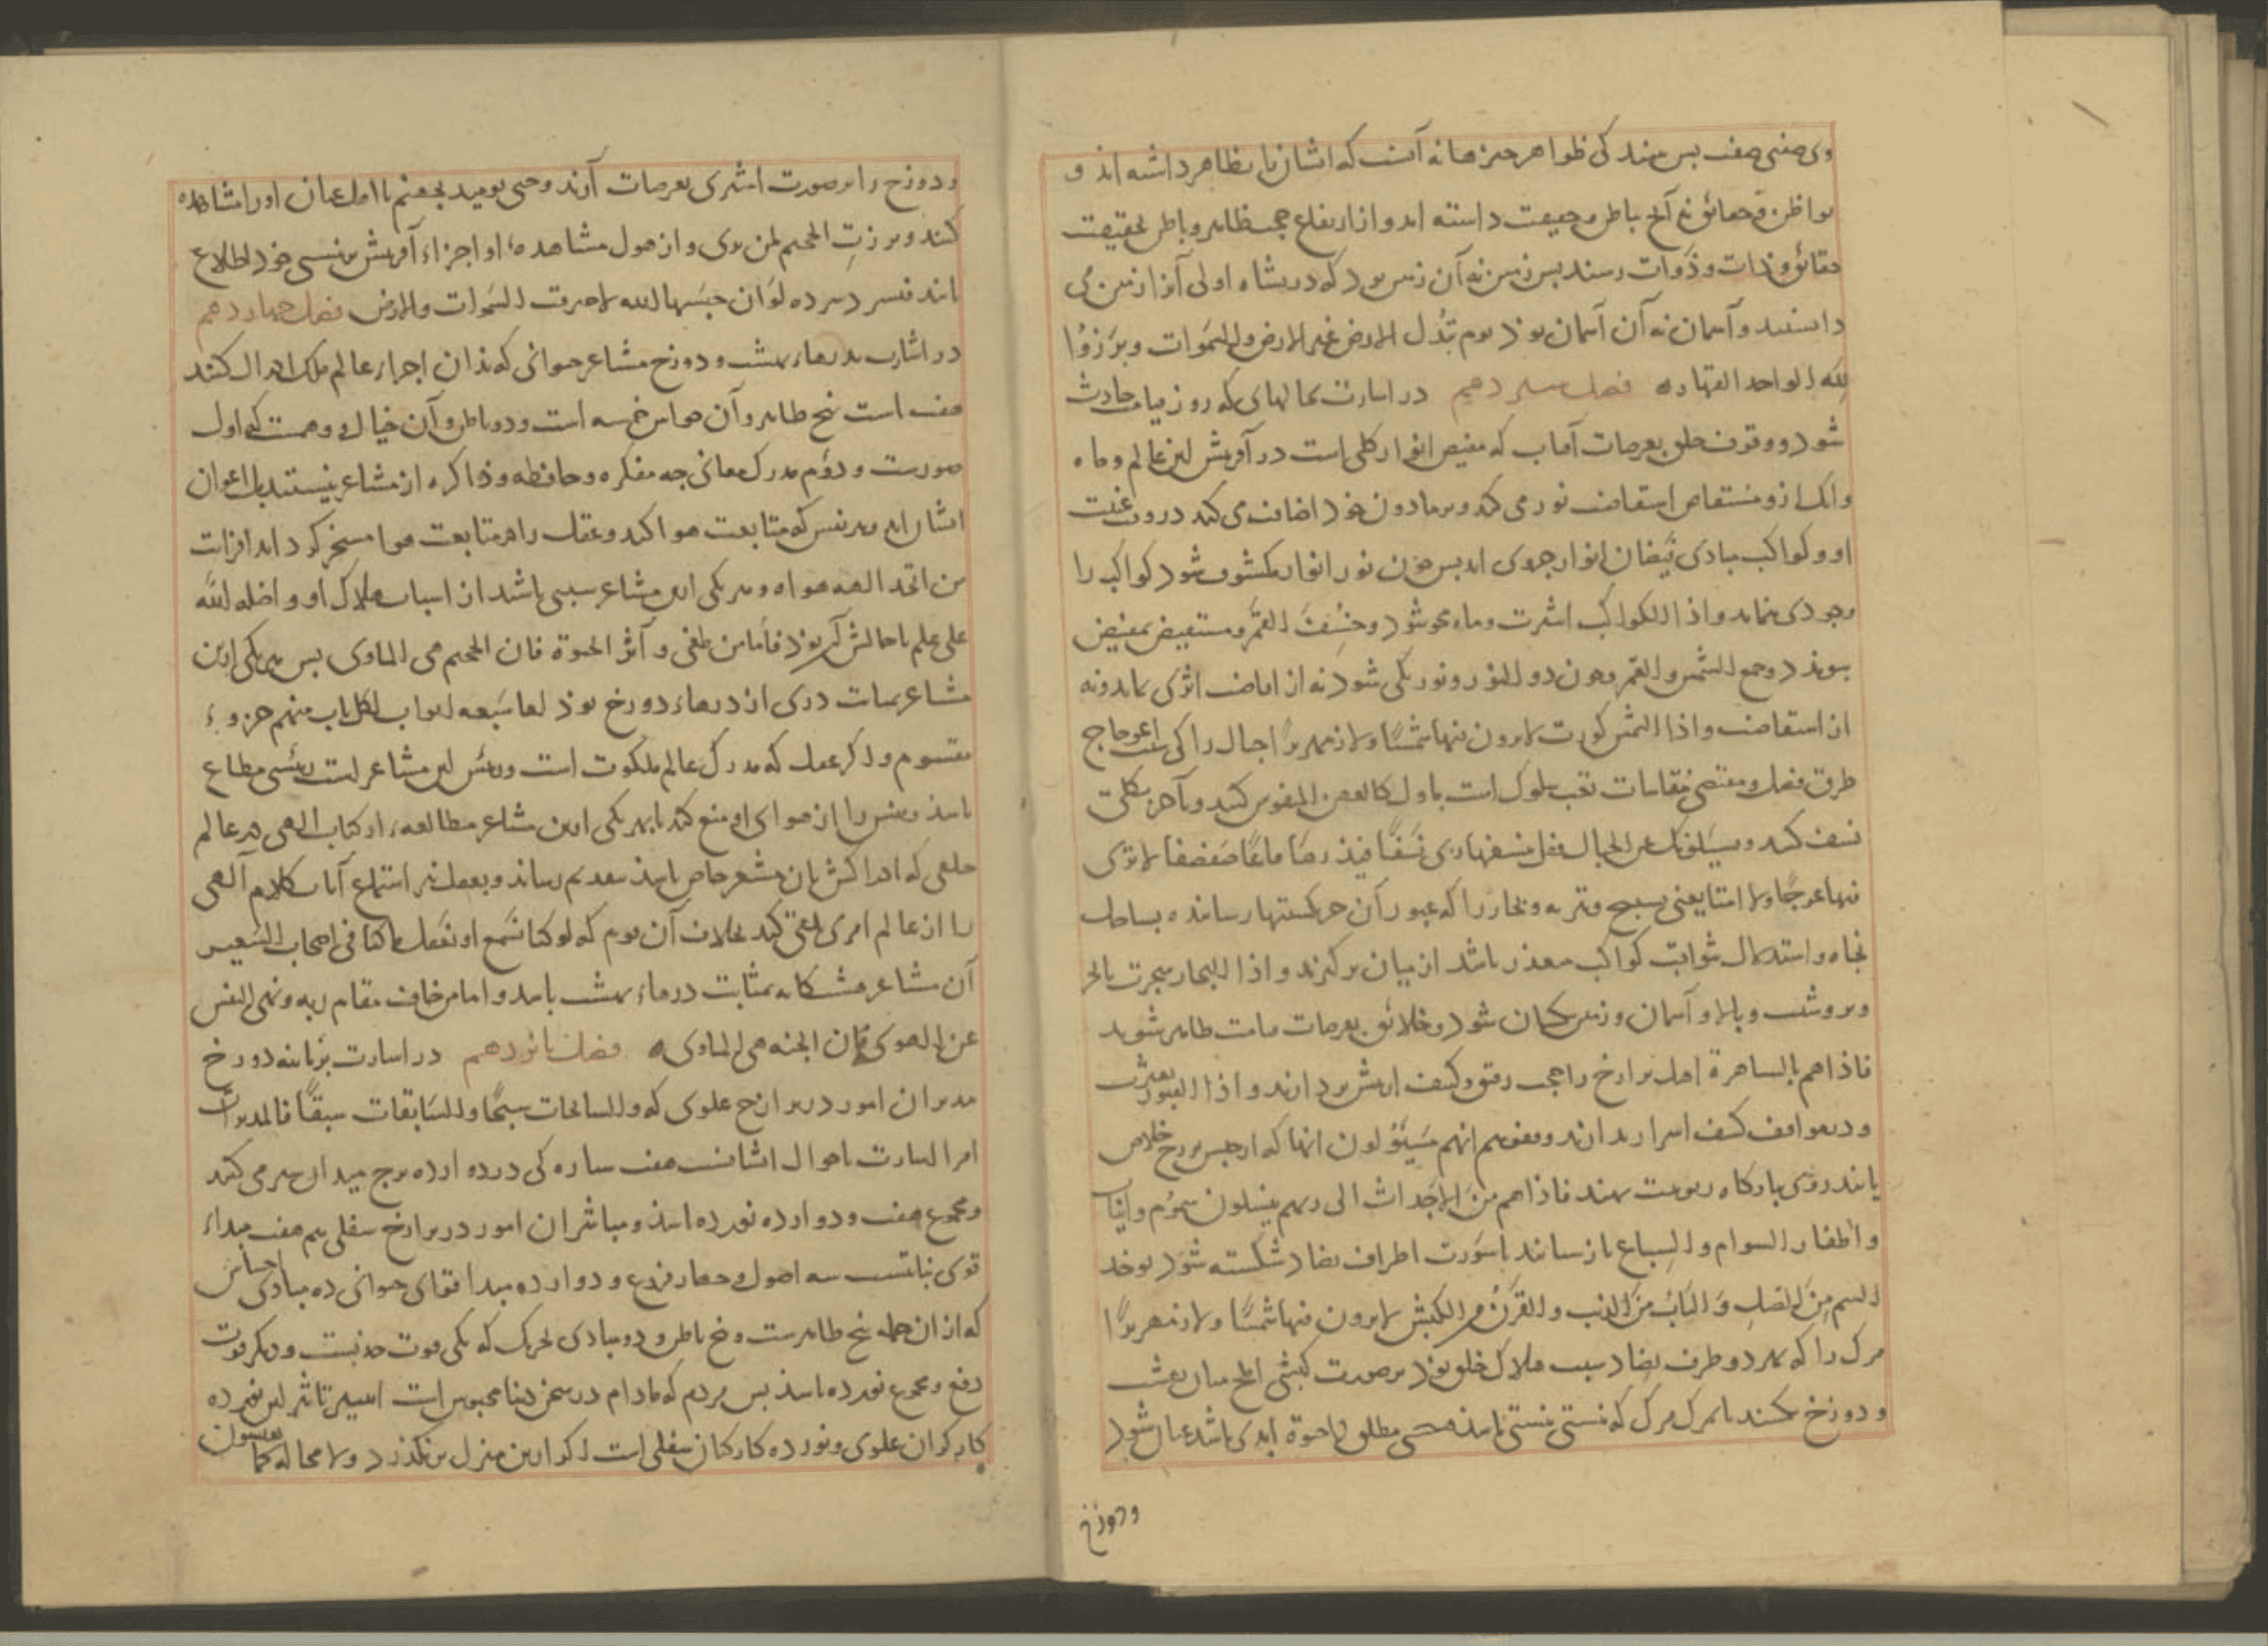 وی صفی صف پس بیند کی ظواهر چیزها نه آنست که اشان بظاهر داشته اند و
بواطن و حقائق نه آنچ باطن و حقیقت دانسته اند و از ارتفاع حجب ظاهر و باطن بحقیقت
حقائق و ذات و ذوات رسند پس زمین نه آن زمین بود که در نشاه اولی آنرا زمین می
دانستند و آسمان نه آن آسمان بوذ یوم تبدل الارض غیر الارض والسموات وبرزوا
لله الواحد القهار ه فصل سیزدهم در اشارت بحالهای که روز قیامت حادث
شود و وقوف خلق بعرصات آفتاب که مفیض انوار کلی است در آفرینش این عالم و ماه
وانک ازو مستفاض استفاضت نور می کند و برمادون خود اضافت می کند در وقت غیبت
او و کواکب مبادی فیضان انوار جزوی اند پس چون نور انوار مکشوف شود کواکب را
وجودی نماند واذا الکواکب انتثرت و ماه محو شود وخسف القمر و مستفیض بمفیض
پیوندد وجمع الشمس والقمر و چون ذو النور و نور یکی شود نه از افاضت اثری بماند ونه
از استفاضت واذا الشمس کورت لا یرون فیها شمسا ولا زمهریرا جبال را کی سبب اعوجاج
طرق فضل و مقتضی مقاسات تعب سلوک است باول کالعهن المنفوش کنند و باخر بکلی
نسف کنند ویسئلونک عن الجبال فقل ینسفها ربی نسفا فیذرها قاعا صفصفا لا تری
فیها عوجا ولا امتا یعنی و بحار را که عبور آن جز بکشتیها رساننده بساحل
نجاه و استدلال ثوابت کواکب معذر باشد از میان برگیرند واذا البحار سجرت تا بحر
و بر و شیب و بالا و آسمان و زمین یکسان شود و خلائق بعرصات قیامت ظاهر شوند
فاذا هم بالساهرة اهل برازخ را حجب رتق و کنف از پیش بردارند واذا القبور بعثرت
و در مواقف کشف اسرار بدارند وقفوهم انهم مسئولون انها که از حبس برزخ خلاص
یابند روی ببارگاه ربوبیت نهند فاذا هم من الاجداث الی ربهم ینسلون سموم وانیاب
واظفار السوام والسباع باز ستانند تا سورت اطراف تضاد شکسته شود یوخذ
السم من الصل والناب من الذئب والقرن من الکبش لا یرون فیها شمسا ولا زمهریرا
مرک را که بهر دو طرف تضاد سبب هلاک خلق بوذ بر صورت کبشی املح میان بهشت
و دوزخ بکشند تا بمرک مرک که نیستی نیستی باشد هستی مطلق تا حیوة ابدی باشد عیان شود
ودوزخ
و دوزخ را بر صورت اشتری بعرصات آرند وجیء یومئذ بجهنم تا اهل عیان او را مشاهده
کنند وبرزت الجحیم لمن یری و از هول مشاهده او اجزاء آفرینش بنیستی خود اطلاع
یابند لولا ان حبسها الله لاحرقت السموات والارض فصل چهاردهم
در اشارت بدرهاء بهشت و دوزخ مشاعر حیوانی که بذان اجزاء عالم ملک ادراک کنند
هفت است پنج ظاهر و آن حواس خمسه است و دو باطن و آن خیال و وهمست کی اول
صورست و دوم مدرک معانی چه مفکره و حافظه و ذاکره از مشاعر نیستند بل اعوان
ایشان اند و هر نفس که متابعت هوا کند و عقل را در متابعت هوا مسخر گرداند افرایت
من اتخذ الهه هواه و هر یکی این مشاعر سببی باشد از اسباب هلاک او واضله الله
علی علم تا حالش آن بوذ فاما من طغی وآثر الحیوة فان الجحیم هی الماوی پس هر یکی ازین
مشاعر بمثابت دری از درهاء دوزخ بوذ لها سبعة ابواب لکل باب منهم جزو
مقسوم و اگر عقل که مدرک عالم ملکوت است و رئیس این مشاعر است رئیسی مطاع
باشد و نفس را از هوای او منع کند تا بهر یکی ازین مشاعر مطالعه از کتاب الهی در عالم
خلقی که ادراکش بان مشعر خاص باشد بتقدیم رساند و بعقل نیز استماع آیات کلام آلهی
را از عالم امری تلقی کند بخلاف آن قوم که لو کنا نسمع او نعقل ما کنا فی اصحاب السعیر
آن مشاعر هشتگانه بمثابت درهاء بهشت باشد واما من خاف مقام ربه ونهی النفس
عن الهوی فان الجنة هی الماوی ه فصل پانزدهم در اشارت بزبانیه دوزخ
مدبران امور در برازخ علوی که والسابحات سبحا والسابقات سبقا فالمدبرات
امرا اشارت باحوال ایشانست هفت سیاره کی در دوازده برج سیر می کنند
و مجموع هفت و دوازده نوزده باشد و مباشران امور در برازخ سفلی هم هفت مبداء
قوی نباتیست سه اصول و چهار فروع و دوازده مبدا قوای حیوانی ده مبادی احساس
که از ان جمله پنج ظاهرست و پنج باطن و دو مبادی تحریک که یکی قوت جذبست و دیگر قوت
دفع و مجموع نوزده باشد پس مردم که مادام در سجن دنیا محبوس است اسیر تاثیر این نوزده
کارکران علوی و نوزده کارکنان سفلی است اگر ازین منزل بنگذرد ولا محاله کما تعیشون